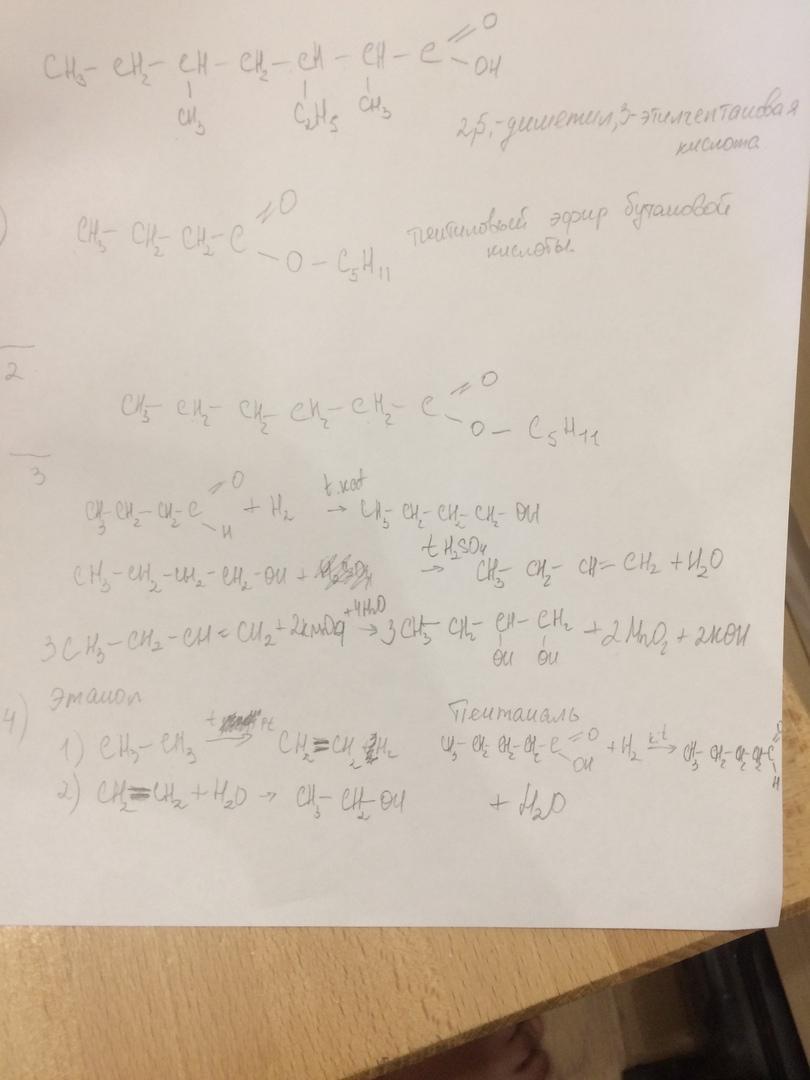 O
CH₃– CH₂– CH – CH₂– CH – CH – C
OH
CH₃ C₂H₅ CH₃
2,5,-диметил,3-этилгептановая
кислота
O
) CH₃– CH₂– CH₂– C
O – C₅H₁₁
пентиловый эфир бутановой
кислоты.
2
O
CH₃– CH₂– CH₂– CH₂– CH₂– C
O – C₅H₁₁
3
O
CH₃–CH₂–CH₂–C + H₂ t.kat → CH₃– CH₂– CH₂– CH₂– OH
H
CH₃–CH₂–CH₂–CH₂–OH + t H₂SO₄ → CH₃– CH₂– CH= CH₂ + H₂O
3CH₃–CH₂–CH=CH₂+2KMnO₄ +4H₂O → 3CH₃– CH₂– CH– CH₂ +2MnO₂ + 2KOH
OH OH
4) Этанол
Пентаналь
1) CH₃–CH₃ t Pt → CH₂=CH₂ H₂
CH₃–CH₂–CH₂–CH₂–C O OH + H₂ k.t → CH₃–CH₂–CH₂–CH₂–C O H
2) CH₂=CH₂ + H₂O → CH₃– CH₂–OH
+ H₂O